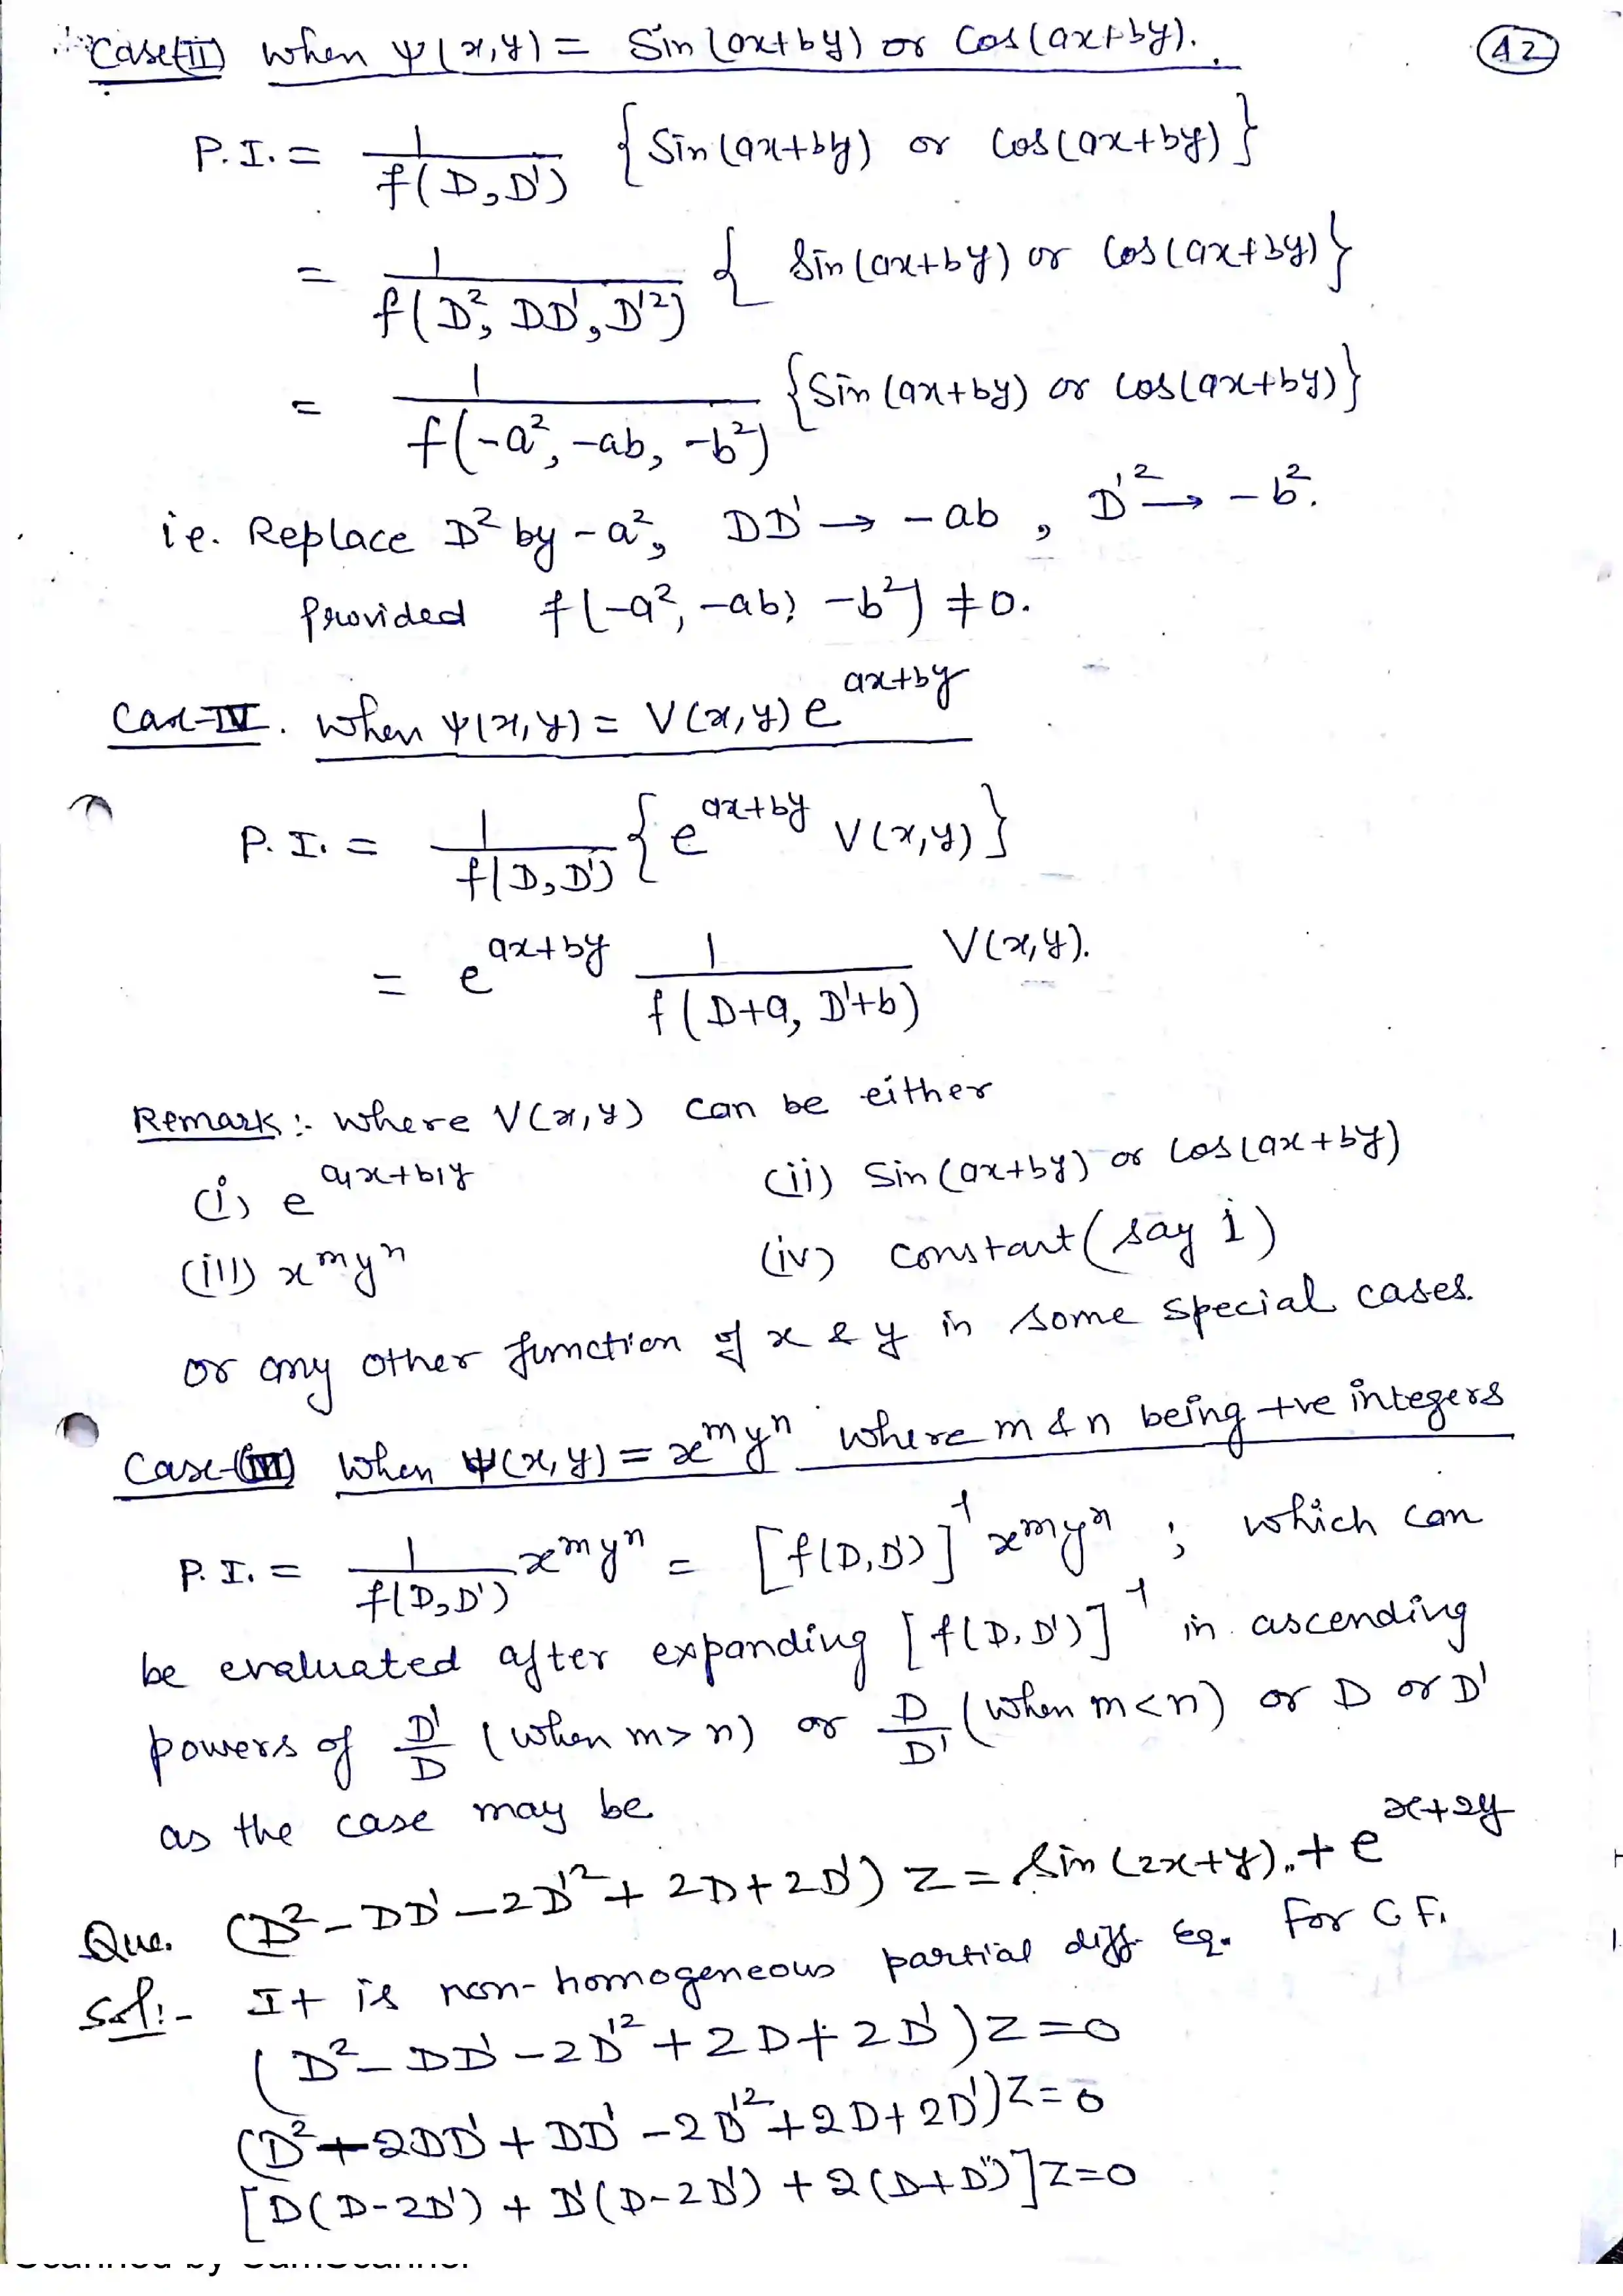 Case(II) When ψ(x,y) = Sin(ax+by) or Cos(ax+by).
42
P.I. = 1/f(D,D') {Sin(ax+by) or Cos(ax+by)}
= 1/f(D², DD', D'²) { Sin(ax+by) or Cos(ax+by)}
= 1/f(-a², -ab, -b²) {Sin(ax+by) or Cos(ax+by)}
i.e. Replace D² by -a², DD' → -ab, D'² → -b².
provided f(-a², -ab, -b²) ≠ 0.
Case-IV. When ψ(x,y) = V(x,y) e^(ax+by)
P.I. = 1/f(D,D') {e^(ax+by) V(x,y)}
= e^(ax+by) 1/f(D+a, D'+b) V(x,y).
Remark :- where V(x,y) can be either
(i) e^(a₁x+b₁y) (ii) Sin(ax+by) or Cos(ax+by)
(iii) x^m y^n (iv) constant (say 1)
or any other function of x & y in some special cases.
Case-(III) When ψ(x,y) = x^m y^n where m & n being +ve integers
P.I. = 1/f(D,D') x^m y^n = [f(D,D')]^-1 x^m y^n ; which can
be evaluated after expanding [f(D,D')]^-1 in ascending
powers of D'/D (when m>n) or D/D' (when m<n) or D or D'
as the case may be
Que. (D² - DD' - 2D'² + 2D + 2D') Z = Sin(2x+y) + e^(x+2y)
Sol:- It is non-homogeneous partial diff. Eq. For C.F.
(D² - DD' - 2D'² + 2D + 2D') Z = 0
(D² - 2DD' + DD' - 2D'² + 2D + 2D') Z = 0
[D(D-2D') + D'(D-2D') + 2(D+D')] Z = 0